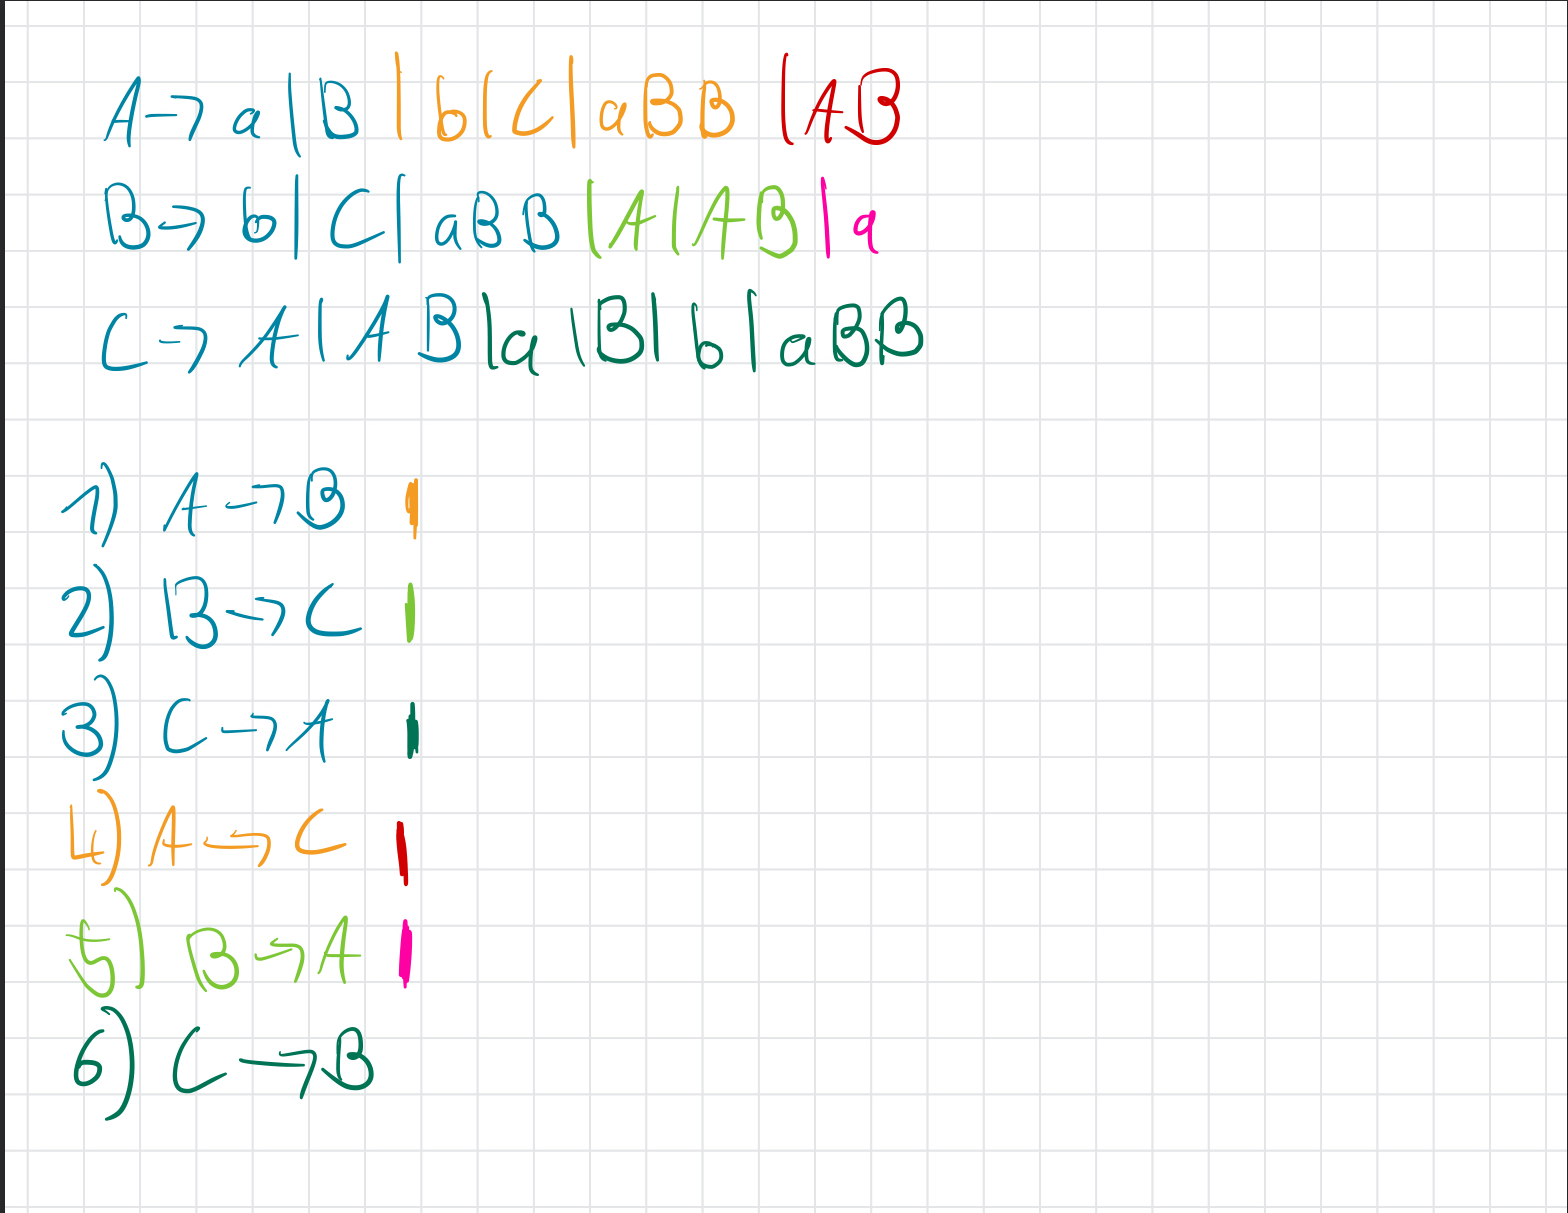 A → a | B | b | C | aBB | AB
B → b | C | aBB | A | AB | a
C → A | AB | a | B | b | aBB
1) A → B
2) B → C
3) C → A
4) A → C
5) B → A
6) C → B